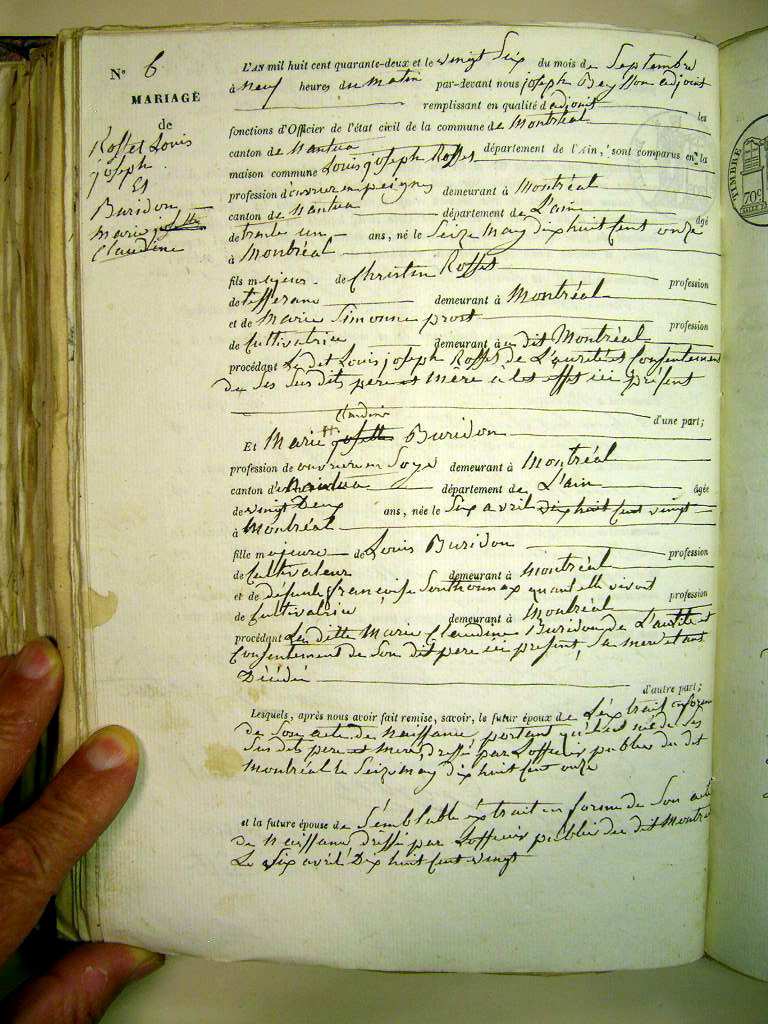 N° 6
MARIAGE
de
Rosset Louis
joseph
Et
Buridon
marie josette
Claudine
L'AN mil huit cent quarante-deux et le vingt Six du mois de Septembre
à neuf heures du matin par-devant nous joseph adjoint
remplissant en qualité d'adjoint les
fonctions d'Officier de l'état civil de la commune de Montréal
canton de Nantua département de l'Ain, sont comparus en la
maison commune Louis joseph Rosset
profession d'ouvrier en peignes demeurant à Montréal
canton de Nantua département de L'ain âgé
de trente un ans, né le Seize may dix huit Cent onze
à Montréal
fils majeur de Christin Rosset profession
de tisserand demeurant à Montréal
et de Marie Simonne prost profession
de Cultivatrice demeurant à au dit Montréal
procédant Le dit Louis joseph Rosset de L'autorité et Consentement
de Ses Susdits pere et mère à cet effet ici présent
d'une part;
claudine
Et Marie josette Buridon
profession de ouvriere en Soye demeurant à Montréal
canton de Nantua département de L'ain âgée
de vingt Deux ans, née le Six avril dix huit Cent vingt
à Montréal
fille majeure de Louis Buridon profession
de Cultivateur demeurant à Montréal
et de défunte françoise Southonnax quant elle vivait profession
de Cultivatrice demeurant à Montréal
procédant La ditte Marie Claudine Buridon de L'autorité et
Consentement de Son dit pere ici présent, Sa mere étant
Décédée
d'autre part;
Lesquels, après nous avoir fait remise, savoir, le futur époux de L'éxtrait en forme
de Son acte de naissance, portant qu'il est né de Ses
Susdits pere et mere, dressé par L'officier public du dit
Montréal le Seize may dix huit Cent onze
et la future épouse de Semblable éxtrait en forme de Son acte
de naissance, dressé par L'officier public du dit Montréal
Le Six avril Dix huit Cent vingt
TIMBRE
70c